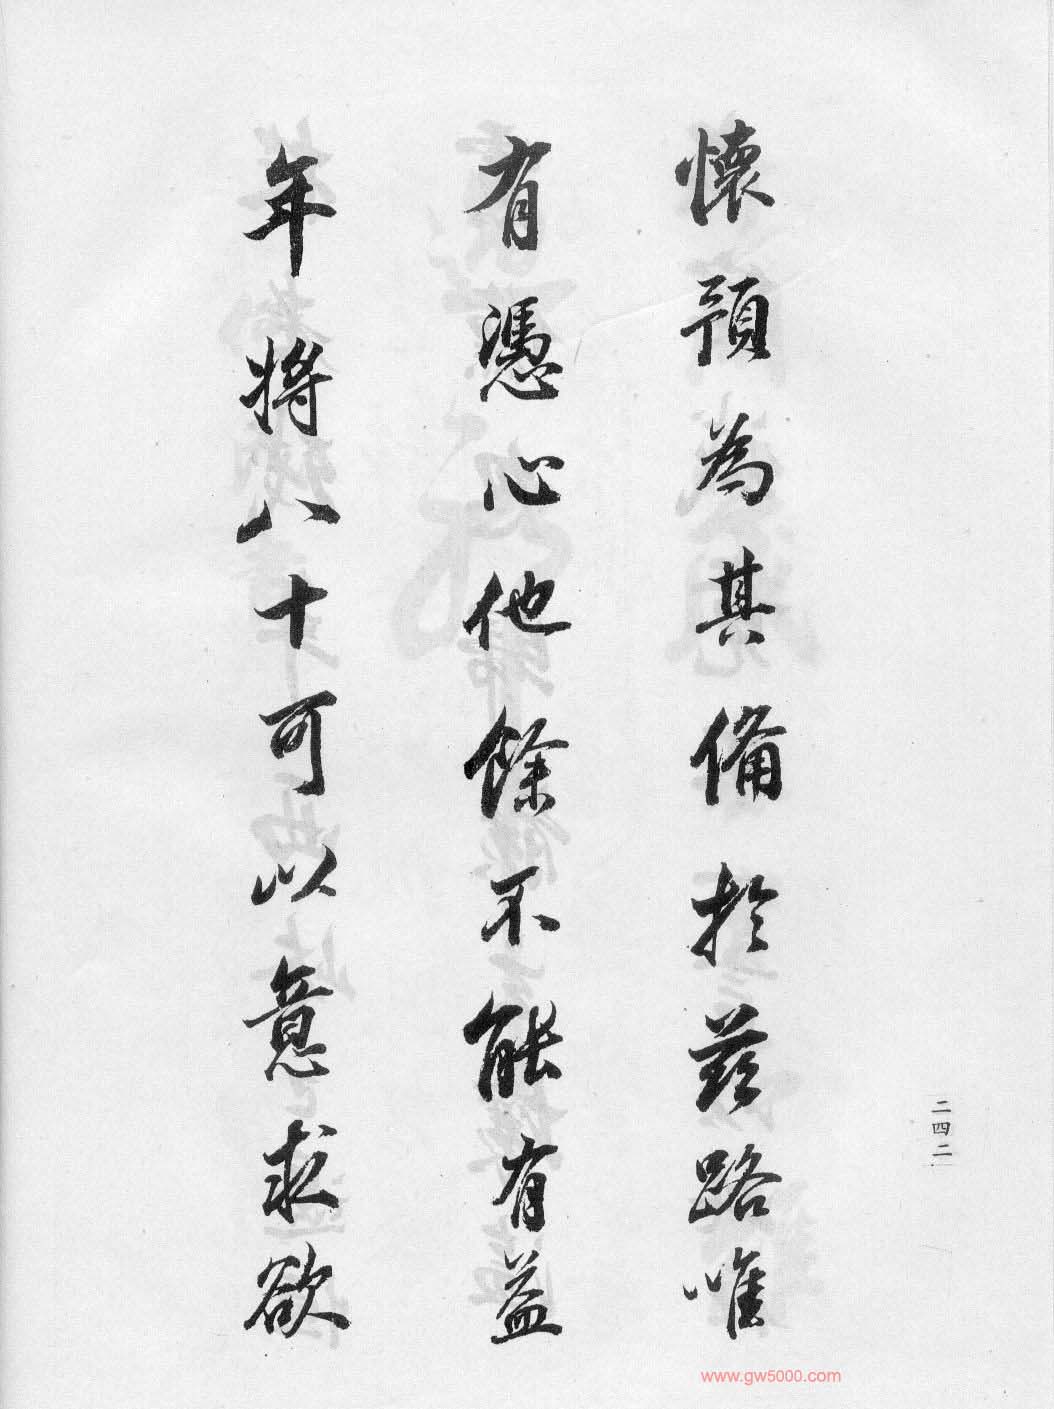 懷預為其備於茲路唯
有憑心他餘不能有益
年將八十可以意求欲
二四二
www.gw5000.com